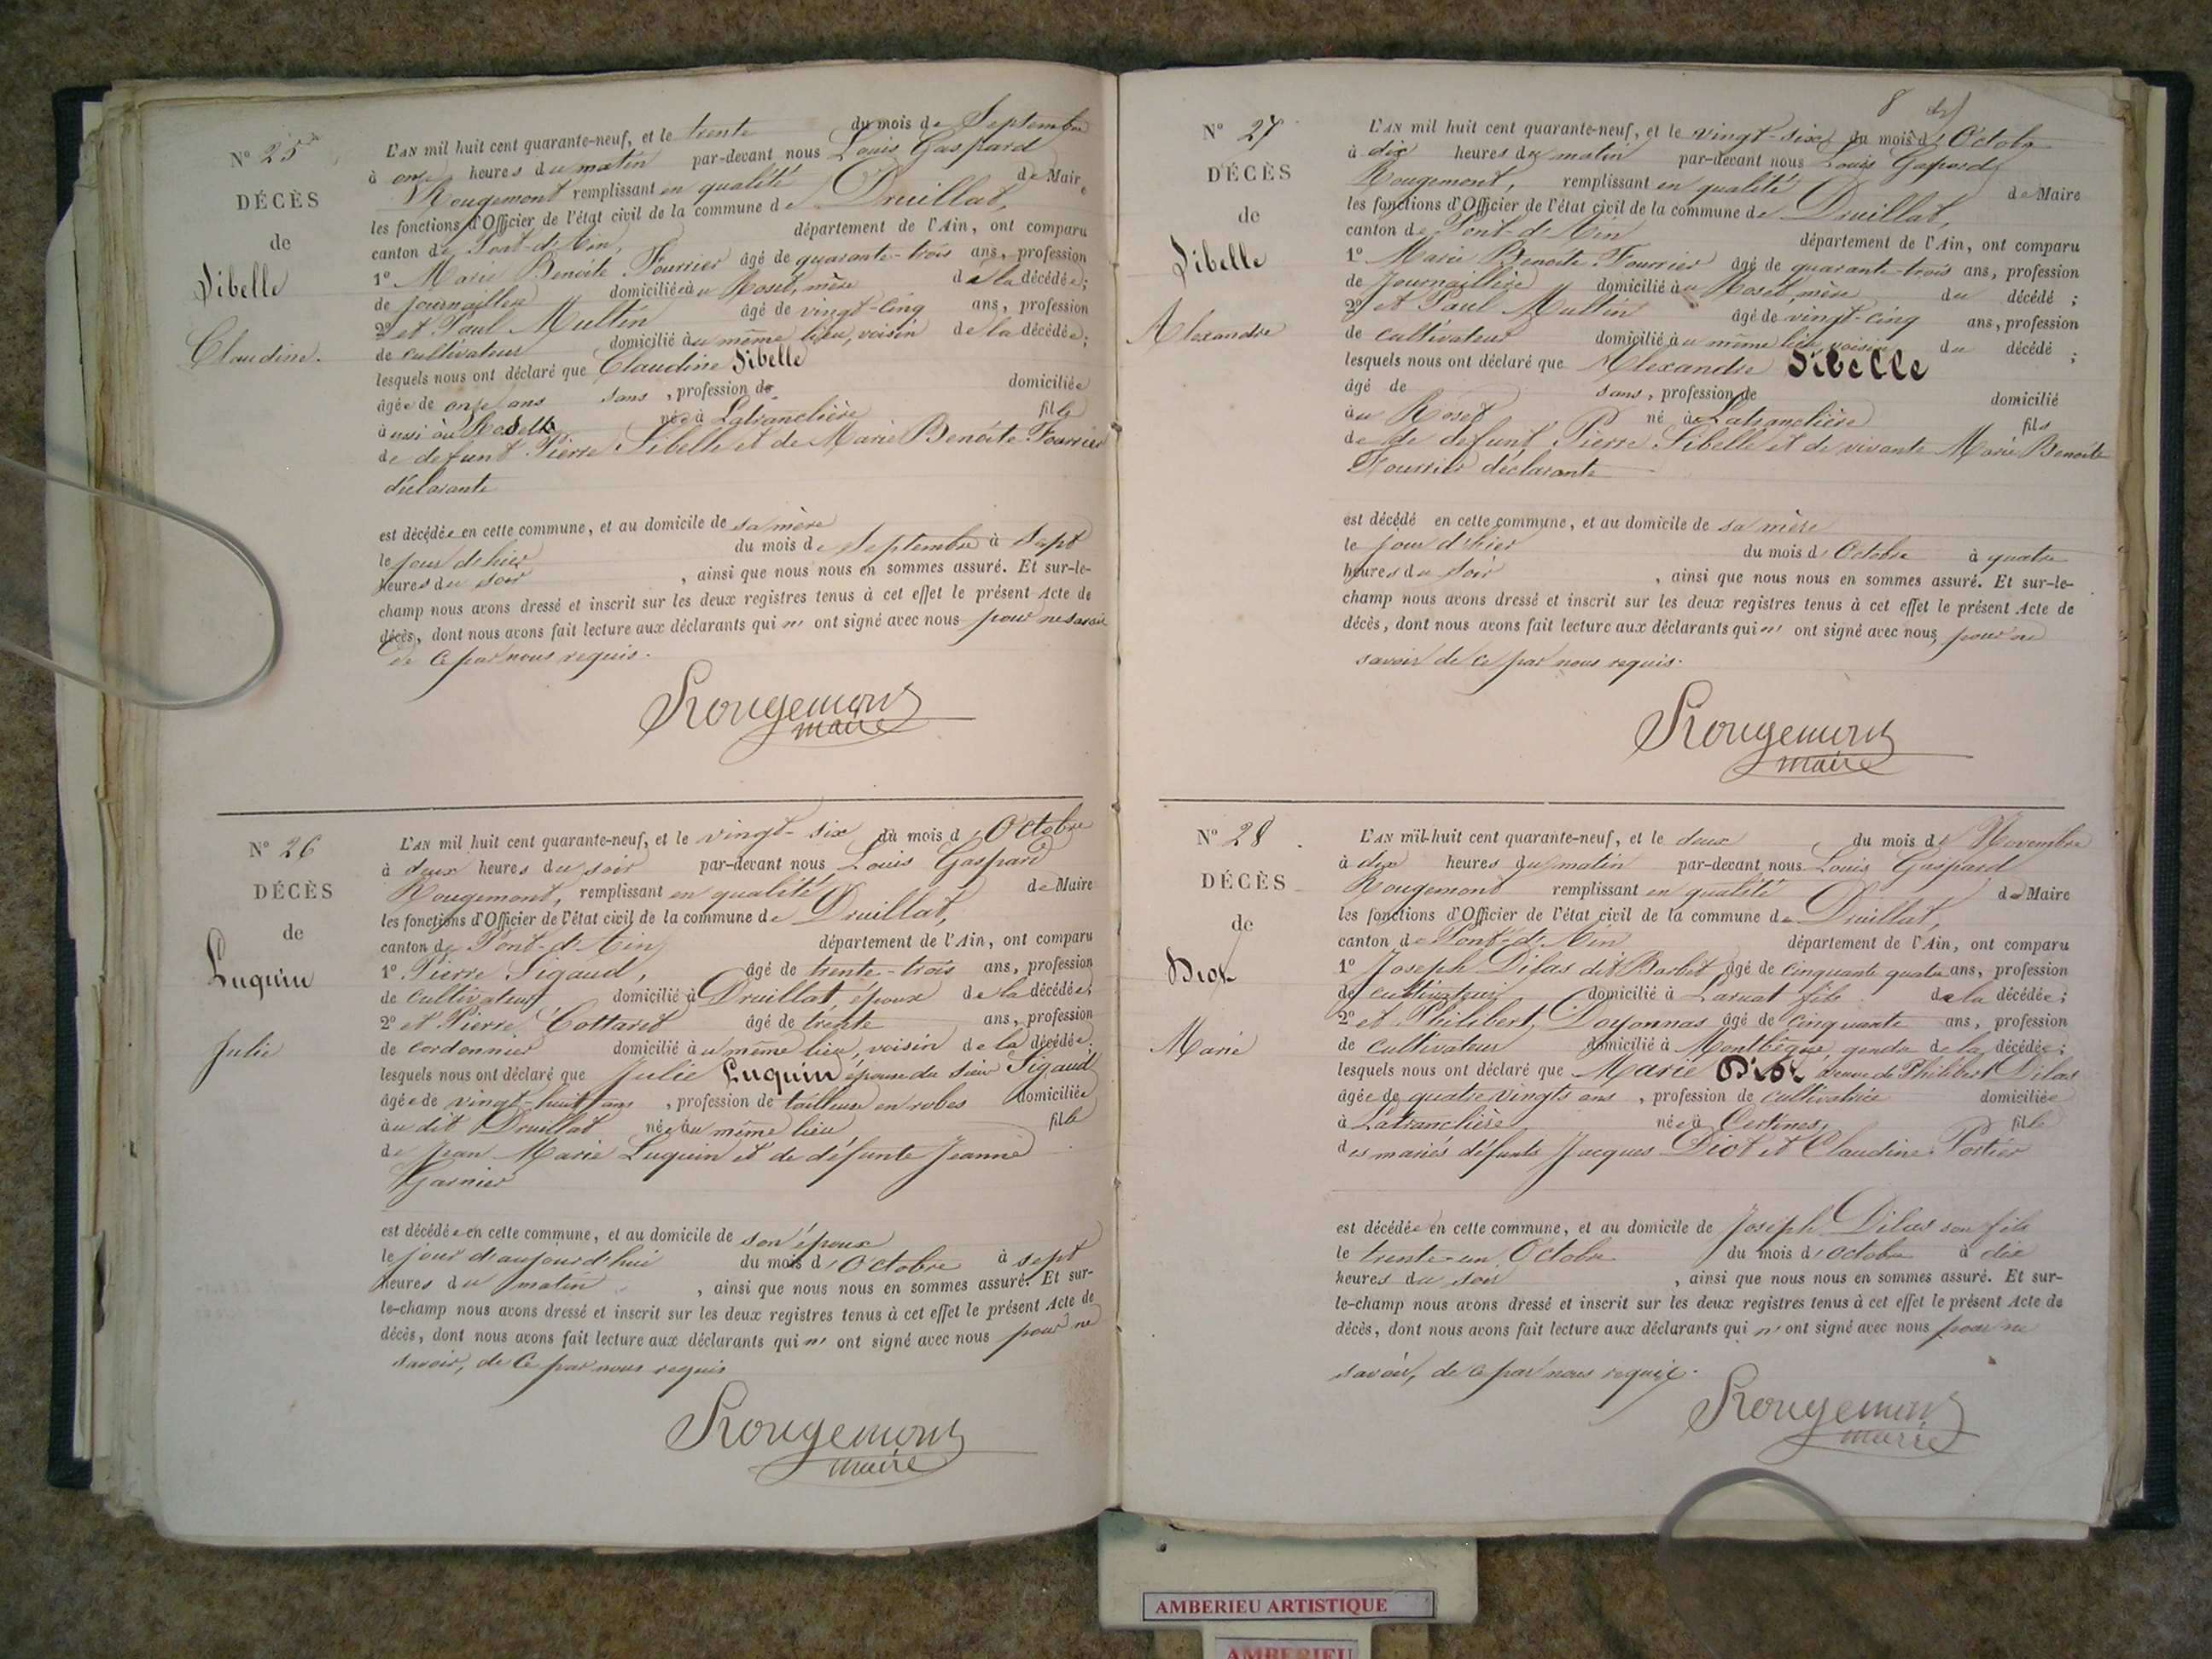 N° 25
DÉCÈS
de
Sibelle
Claudine.
L'AN mil huit cent quarante-neuf, et le trente du mois de Septembre
à onze heures du matin par-devant nous Louis Gaspard
Rougemont remplissant en qualité de Maire
les fonctions d'Officier de l'état civil de la commune de Druillat,
canton de Pont-d'Ain, département de l'Ain, ont comparu
1° Marie Benoite Fourrier âgé de quarante-trois ans, profession
de journaillère domiciliée au Roset, mère de la décédée;
2° et Paul Multin âgé de vingt-cinq ans, profession
de cultivateur domicilié au même lieu, voisin de la décédée;
lesquels nous ont déclaré que Claudine Sibelle
âgée de onze ans sans, profession de domiciliée
aussi au Roset née à Latranclière fille
de défunt Pierre Sibelle et de Marie Benoite Fourrier
déclarante
est décédée en cette commune, et au domicile de sa mère
le jour de hier du mois de Septembre à Sept
heures du soir, ainsi que nous nous en sommes assuré. Et sur-le-
champ nous avons dressé et inscrit sur les deux registres tenus à cet effet le présent Acte de
décès, dont nous avons fait lecture aux déclarants qui n' ont signé avec nous pour ne savoir
de ce par nous requis.
Rougemont
maire
N° 26
DÉCÈS
de
Luquin
Julie
L'AN mil huit cent quarante-neuf, et le vingt-six du mois d'Octobre
à deux heures du soir par-devant nous Louis Gaspard
Rougemont, remplissant en qualité de Maire
les fonctions d'Officier de l'état civil de la commune de Druillat,
canton de Pont-d'Ain département de l'Ain, ont comparu
1° Pierre Sigaud, âgé de trente-trois ans, profession
de cultivateur domicilié à Druillat, époux de la décédée;
2° et Pierre Cottaret âgé de trente ans, profession
de cordonnier domicilié au même lieu, voisin de la décédée;
lesquels nous ont déclaré que Julie Luquin épouse du sieur Sigaud
âgée de vingt-huit ans, profession de tailleuse en robes domiciliée
au dit Druillat née au même lieu fille
de Jean Marie Luquin et de défunte Jeanne
Garnier
est décédée en cette commune, et au domicile de son époux
le jour d'aujourd'hui du mois d'Octobre à sept
heures du matin, ainsi que nous nous en sommes assuré. Et sur-
le-champ nous avons dressé et inscrit sur les deux registres tenus à cet effet le présent Acte de
décès, dont nous avons fait lecture aux déclarants qui n' ont signé avec nous pour ne
savoir, de ce par nous requis
Rougemont
maire
N° 27
DÉCÈS
de
Sibelle
Alexandre
L'AN mil huit cent quarante-neuf, et le vingt-six du mois d'Octobre
à dix heures du matin par-devant nous Louis Gaspard
Rougemont, remplissant en qualité de Maire
les fonctions d'Officier de l'état civil de la commune de Druillat,
canton de Pont-d'Ain département de l'Ain, ont comparu
1° Marie Benoite Fourrier âgé de quarante-trois ans, profession
de Journaillière domicilié au Roset mère du décédé;
2° et Paul Multin âgé de vingt-cinq ans, profession
de cultivateur domicilié au même lieu, voisin du décédé;
lesquels nous ont déclaré que Alexandre Sibelle
âgé de sans, profession de domicilié
au Roset né à Latranclière fils
de de défunt Pierre Sibelle et de vivante Marie Benoite
Fourrier déclarante
est décédé en cette commune, et au domicile de sa mère
le jour d'hier du mois d'Octobre à quatre
heures du soir, ainsi que nous nous en sommes assuré. Et sur-le-
champ nous avons dressé et inscrit sur les deux registres tenus à cet effet le présent Acte de
décès, dont nous avons fait lecture aux déclarants qui n' ont signé avec nous, pour ne
savoir de ce par nous requis.
Rougemont
maire
N° 28
DÉCÈS
de
Diot
Marie
L'AN mil huit cent quarante-neuf, et le deux du mois de Novembre
à dix heures du matin par-devant nous Louis Gaspard
Rougemont remplissant en qualité de Maire
les fonctions d'Officier de l'état civil de la commune de Druillat,
canton de Pont-d'Ain département de l'Ain, ont comparu
1° Joseph Dilas dit Barbet âgé de cinquante quatre ans, profession
de cultivateur domicilié à Larnat fils de la décédée;
2° et Philibert Doyonnas âgé de cinquante ans, profession
de cultivateur domicilié à Montbègue, gendre de la décédée;
lesquels nous ont déclaré que Marie Diot veuve de Philibert Dilas
âgée de quatre vingts ans, profession de cultivatrice domiciliée
à Latranclière née à Certines, fille
des mariés défunts Jacques Diot et Claudine Portier
est décédée en cette commune, et au domicile de Joseph Dilas son fils
le trente-un Octobre du mois d'Octobre à dix
heures du soir, ainsi que nous nous en sommes assuré. Et sur-
le-champ nous avons dressé et inscrit sur les deux registres tenus à cet effet le présent Acte de
décès, dont nous avons fait lecture aux déclarants qui n' ont signé avec nous pour ne
savoir, de ce par nous requis.
Rougemont
maire
AMBERIEU ARTISTIQUE
AMBERIEU